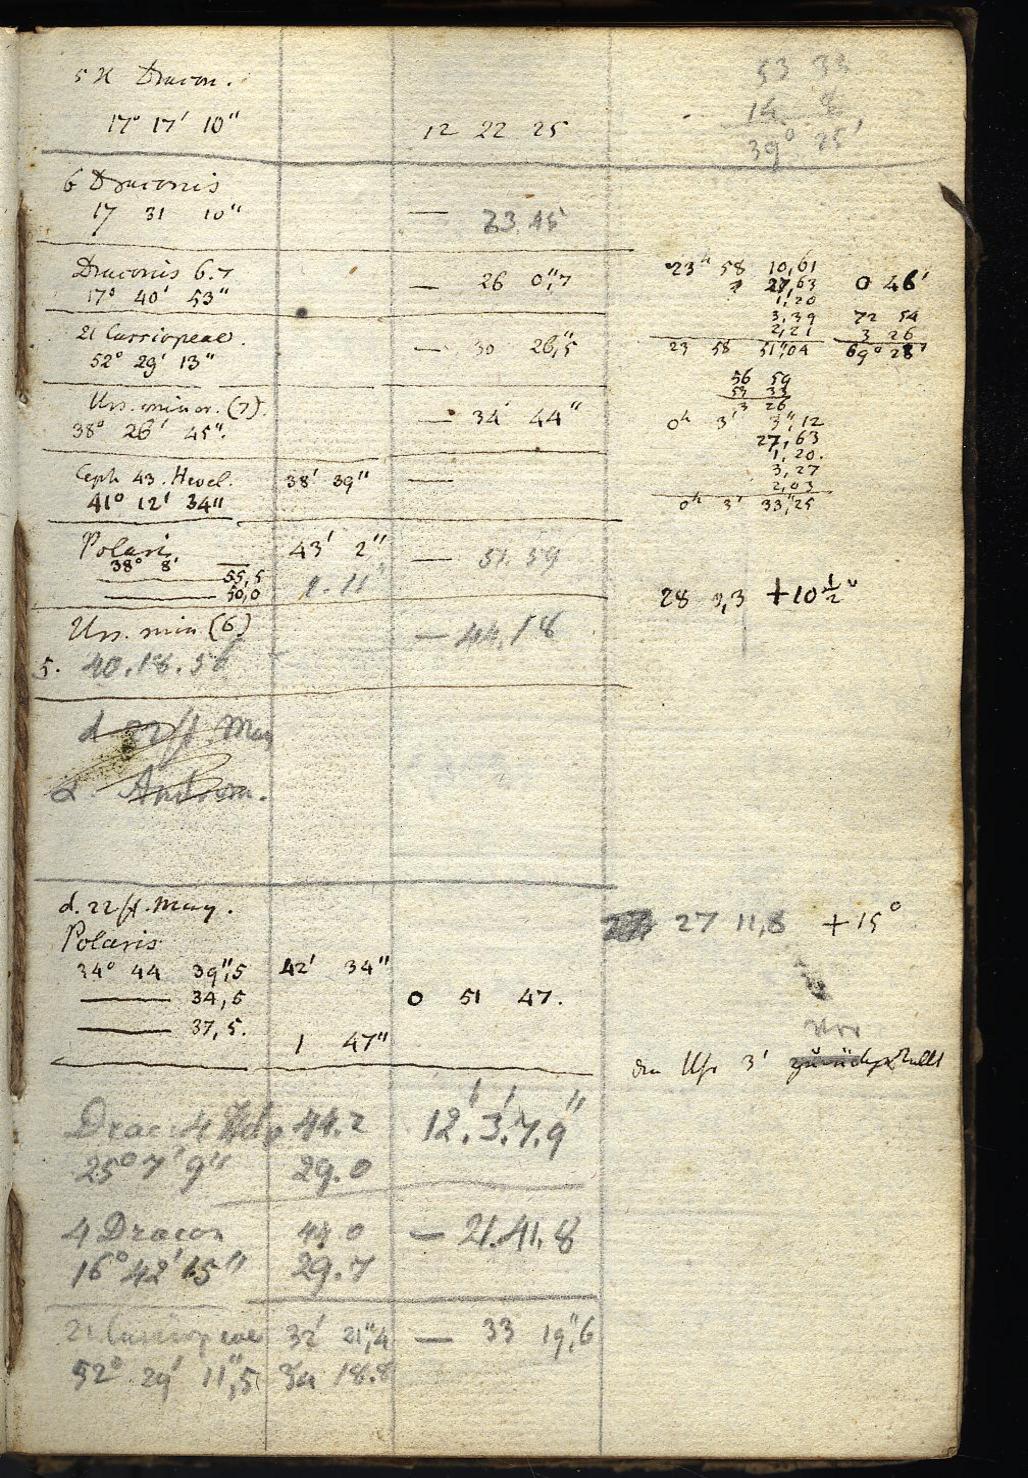 5 ϰ Dracon.
17° 17' 10" 12 22 25
53 33
14 8
39° 25'
6 Draconis
17 31 10" — 23.45
Draconis 6.7
17° 40' 53" — 26 0",7
21 Cassiopeae.
52° 29' 13" — 30 26,5
Urs. minor. (7).
38° 26' 45". — 34' 44"
Ceph 43. Hevel. 38' 39" —
41° 12' 34"
Polaris 43' 2" — 51.59
38° 8'
— 55,5 1.11"
— 50,0
Urs. min (6) — 44.18
5. 40.18.56
23h 58 10,61
27,63 0 46'
1,20
3,39 72 54
2,21 3 26
23 58 51",04 69° 28'
56 59
53 33
3 26
0h 3' 3",12
27,63
1,20.
3,27
2,03
0h 3' 33",25
28 3,3 +10½°
d. 22/ May
α. Androm.
d. 22/ May.
Polaris
34° 44 39",5 42' 34"
— 34,5 0 51 47.
— 37,5.
1 47"
27 11,8 +15°
Vor
den Uhr 3' zurückgestellt
Drac. 4 44.2 12'.3'.7.9"
25° 7' 9" 29.0
4 Dracon 44.0 — 21.41.8
16° 42' 15" 29.7
21 Cassiopeae 32' 21",4 — 33 19",6
52° 29' 11",5 18.8